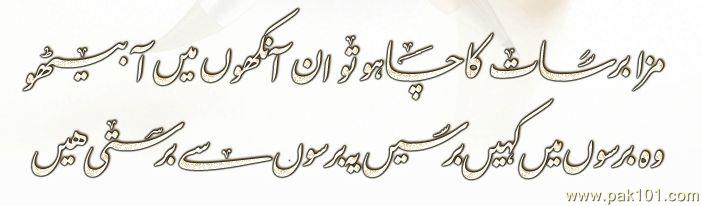 مزا برسات کا چاہو تو ان آنکھوں میں آ بیٹھو
وہ برسوں میں کہیں برسیں یہ برسوں سے برستی ھیں
www.pak101.com